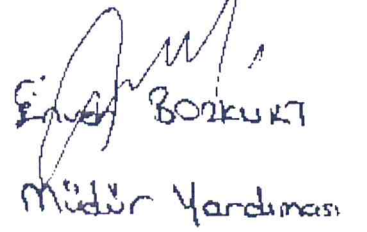 BOZKURT
Müdür Yardımcısı